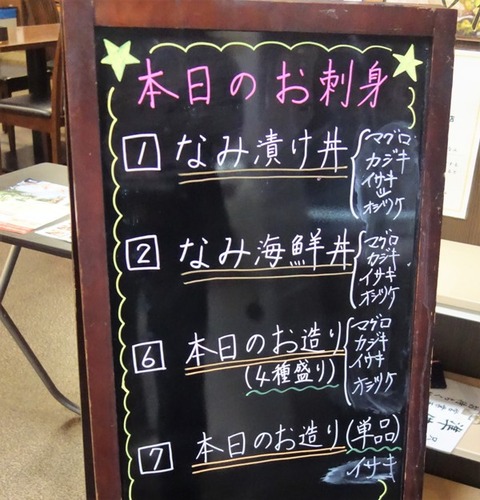 本日のお刺身
1 なみ漬け丼
マグロ
カジキ
イサキ
オシツケ
2 なみ海鮮丼
マグロ
カジキ
イサキ
オシツケ
6 本日のお造り
(4種盛り)
マグロ
カジキ
イサキ
オシツケ
7 本日のお造り(単品)
イサキ